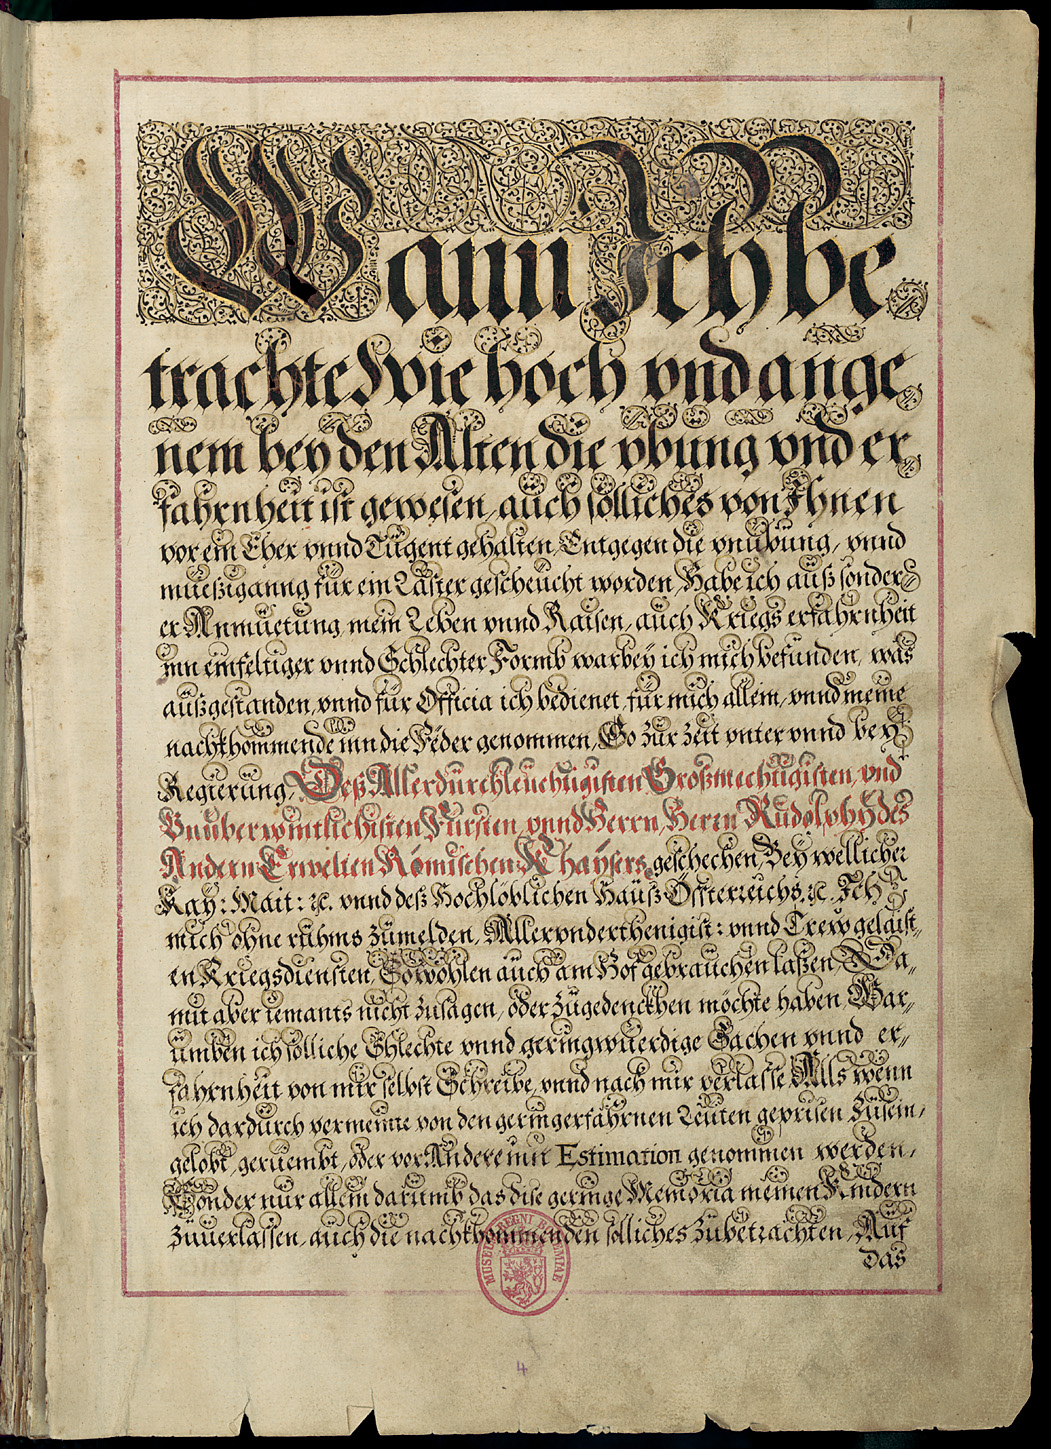 Wann Ich be
trachte Wie hoch vnd ange
nem bey den Alten die vbung vnd er
fahrnheit ist gewesen, auch solliches von Ihnen
vor ein Eher vnnd Tugent gehalten, Entgegen die vnubung, vnnd
mueßiganng für ein Laster gescheucht worden, Habe ich auß sonder
er Anmuetung mein Leben vnnd Raisen, auch Kriegs erfahrnheit
inn einfeltiger vnnd Schlechter Formb warbey ich mich befunden, was
außgestanden, vnnd für Officia ich bedienet, für mich allein, vnnd meine
nachkhommende inn die Feder genommen, So zur zeit vnter vnnd bey
Regierung, Deß Allerdurchleuchtigisten Großmechtigisten, vnd
Vnuberwintlichisten Fürsten, vnnd Herrn, Herrn Rudolphy des
Andern Erwelten Römischen Khaysers, geschechen, Bey wellicher
Kay: Mait: ꝛc. vnnd deß Hochlöblichen Hauß Össterreichs. ꝛc. Ich
mich ohne rühms zumelden, Allervnderthenigist: vnnd Trew gelaist„
en Kriegsdiensten, Sowohlen auch am Hof gebrauchen laßen, Da„
mit aber iemants nicht zusagen, oder zugedenckhen möchte haben, War„
umben ich solliche Schlechte vnnd geringwuerdige Sachen vnnd er„
fahrnheit von mir selbst Schreibe, vnnd nach mir verlasse, Alls wenn
ich dardurch vermeinte von den geringerfahrnen Leuten geprisen Zusein,
gelobt, geruembt, oder vor Andere mit Estimation genommen werden,
Sonder nur allein darumb das dise geringe Memoria meinen Kindern
zuuerlassen, auch die nachkhommenden solliches zubetrachten, Auf
das
MUSEUM REGNI BOHEMIAE
4